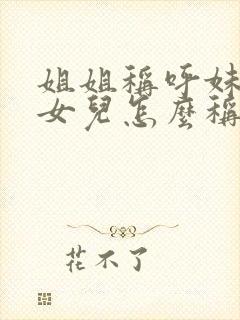 姐姐稱呼妹
女兒怎麼稱
花不了